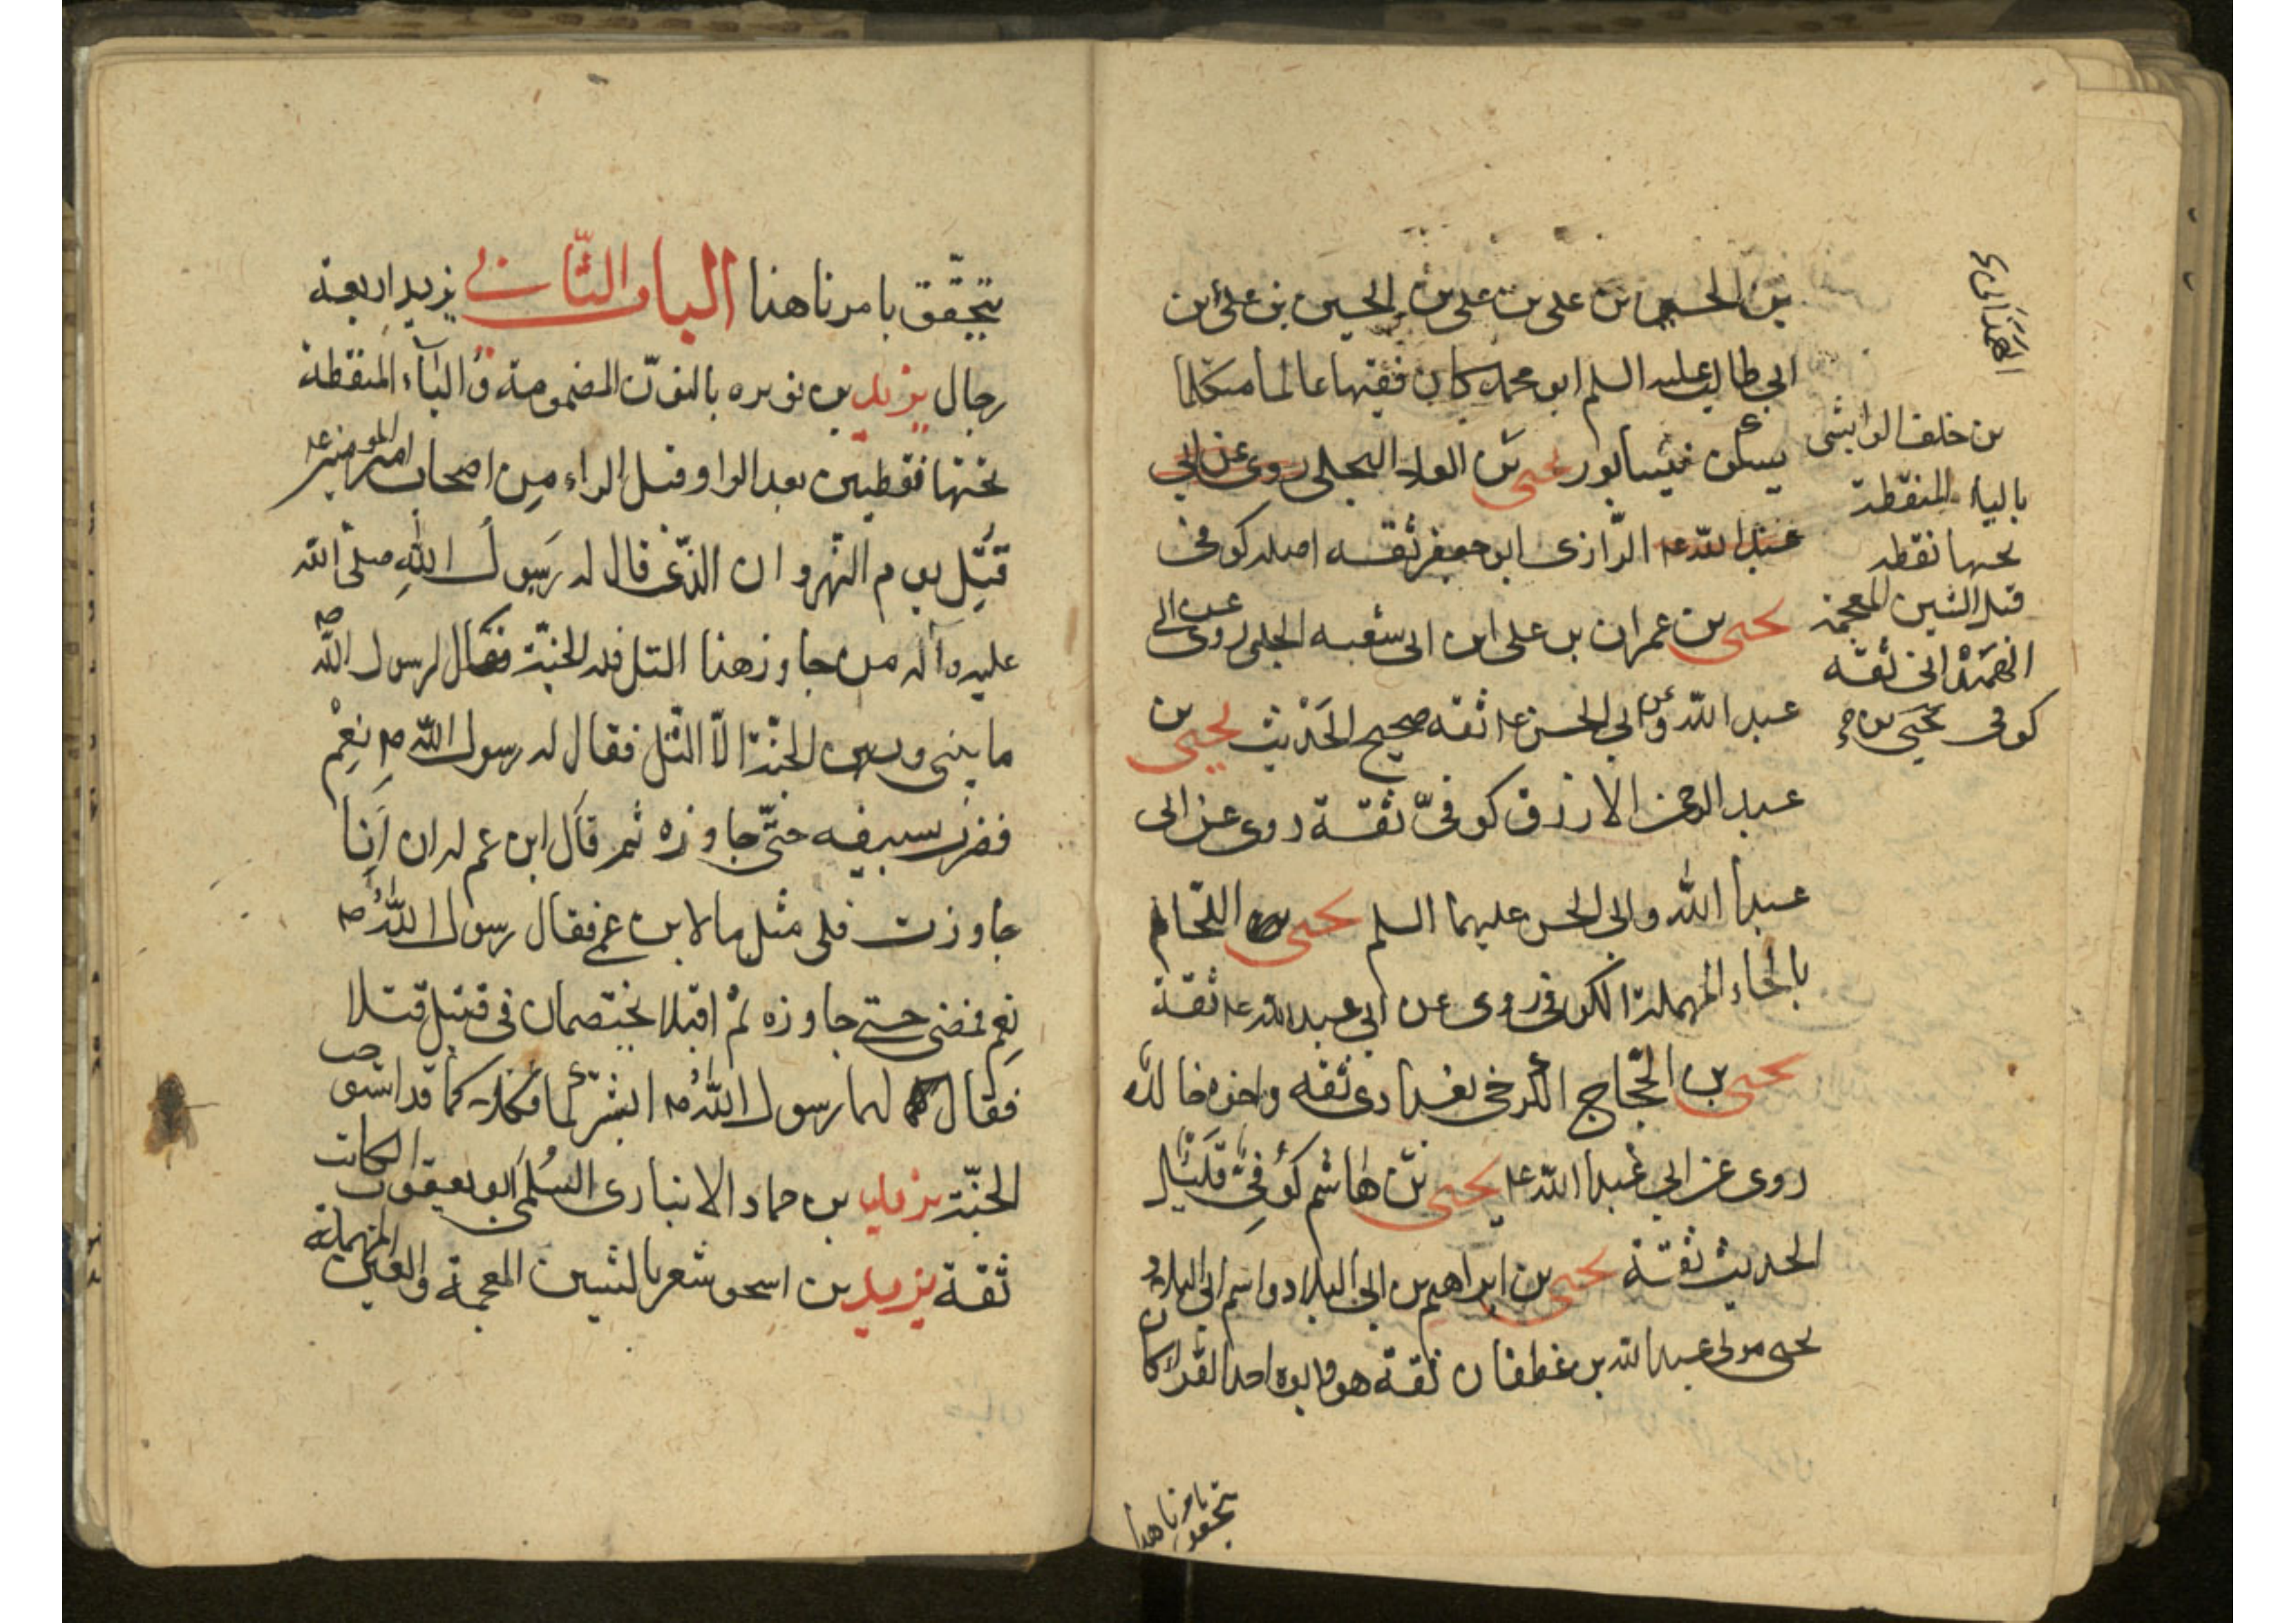 بن الحسين بن علی بن علی بن الحسين بن علی ابن
ابی طالب علیه السلم ابو محمد کان فقیها عالما متکلما
یسکن نیسابور یحیی بن العلا البجلی روی عن ابی
عبد الله ع الرازی ابو جعفر ثقه اصله کوفی
یحیی بن عمران بن علی ابن ابی شعبه الحلبی روی عن ابی
عبد الله وعن ابی الحسن ع ثقه صحیح الحدیث یحیی بن
عبد الرحمن الازرق کوفیّ ثقة روی عن ابی
عبد الله وابی الحسن علیهما السلم یحیی اللحّام
بالحاء المهملة الکوفی روی عن ابی عبد الله ع ثقة
یحیی بن الحجّاج الکرخی بغدادی ثقه واخوه خالد
روی عن ابی عبد الله ع یحیی بن هاشم کوفیّ قلیل
الحدیث ثقة یحیی بن ابراهیم بن ابی البلاد واسم ابی البلاد
یحیی مولی عبد الله بن غطفان ثقة هو وابوه احد القراء کان
الهمدانی
بن خلف الوابشی
بالیاء المنقطة
تحتها نقطه
قبل الشین المعجمة
الهمدانی ثقه
کوفی یحیی بن
یتحقق بامرنا هذا
یتحقّق بامرنا هذا الباب الثانی یزید اربعة
رجال یزید بن نویره بالنون المضمومة والیاء المنقطة
تحتها نقطتین بعد الواو قبل الراء من اصحاب امیر المومنین ع
قُتِل یوم النهروان الذی قال له رَسول الله صلی الله
علیه وآله من جاوز هذا التل فله الجنّة فقال لرسول الله ص
ما بینی وبین الجنّة الّا التّل فقال له رسول الله ص نعم
فضرب بسیفه حتّی جاوزه ثم قال ابن عم له ان اَنا
جاوزت فلی مثل ما لابن عمی فقال رسول الله ص
نعم فمضی حتی جاوزه ثم اقبلا یختصمان فی قتیل قتلا
فقال لهما رسول الله ص ابشرا فکلاکما قد استوجب
الجنّة یزید بن حماد الانباری السُلمی ابو یعقوب الکاتب
ثقة یزید بن اسحق شعر بالشین المعجمة والعین المهملة